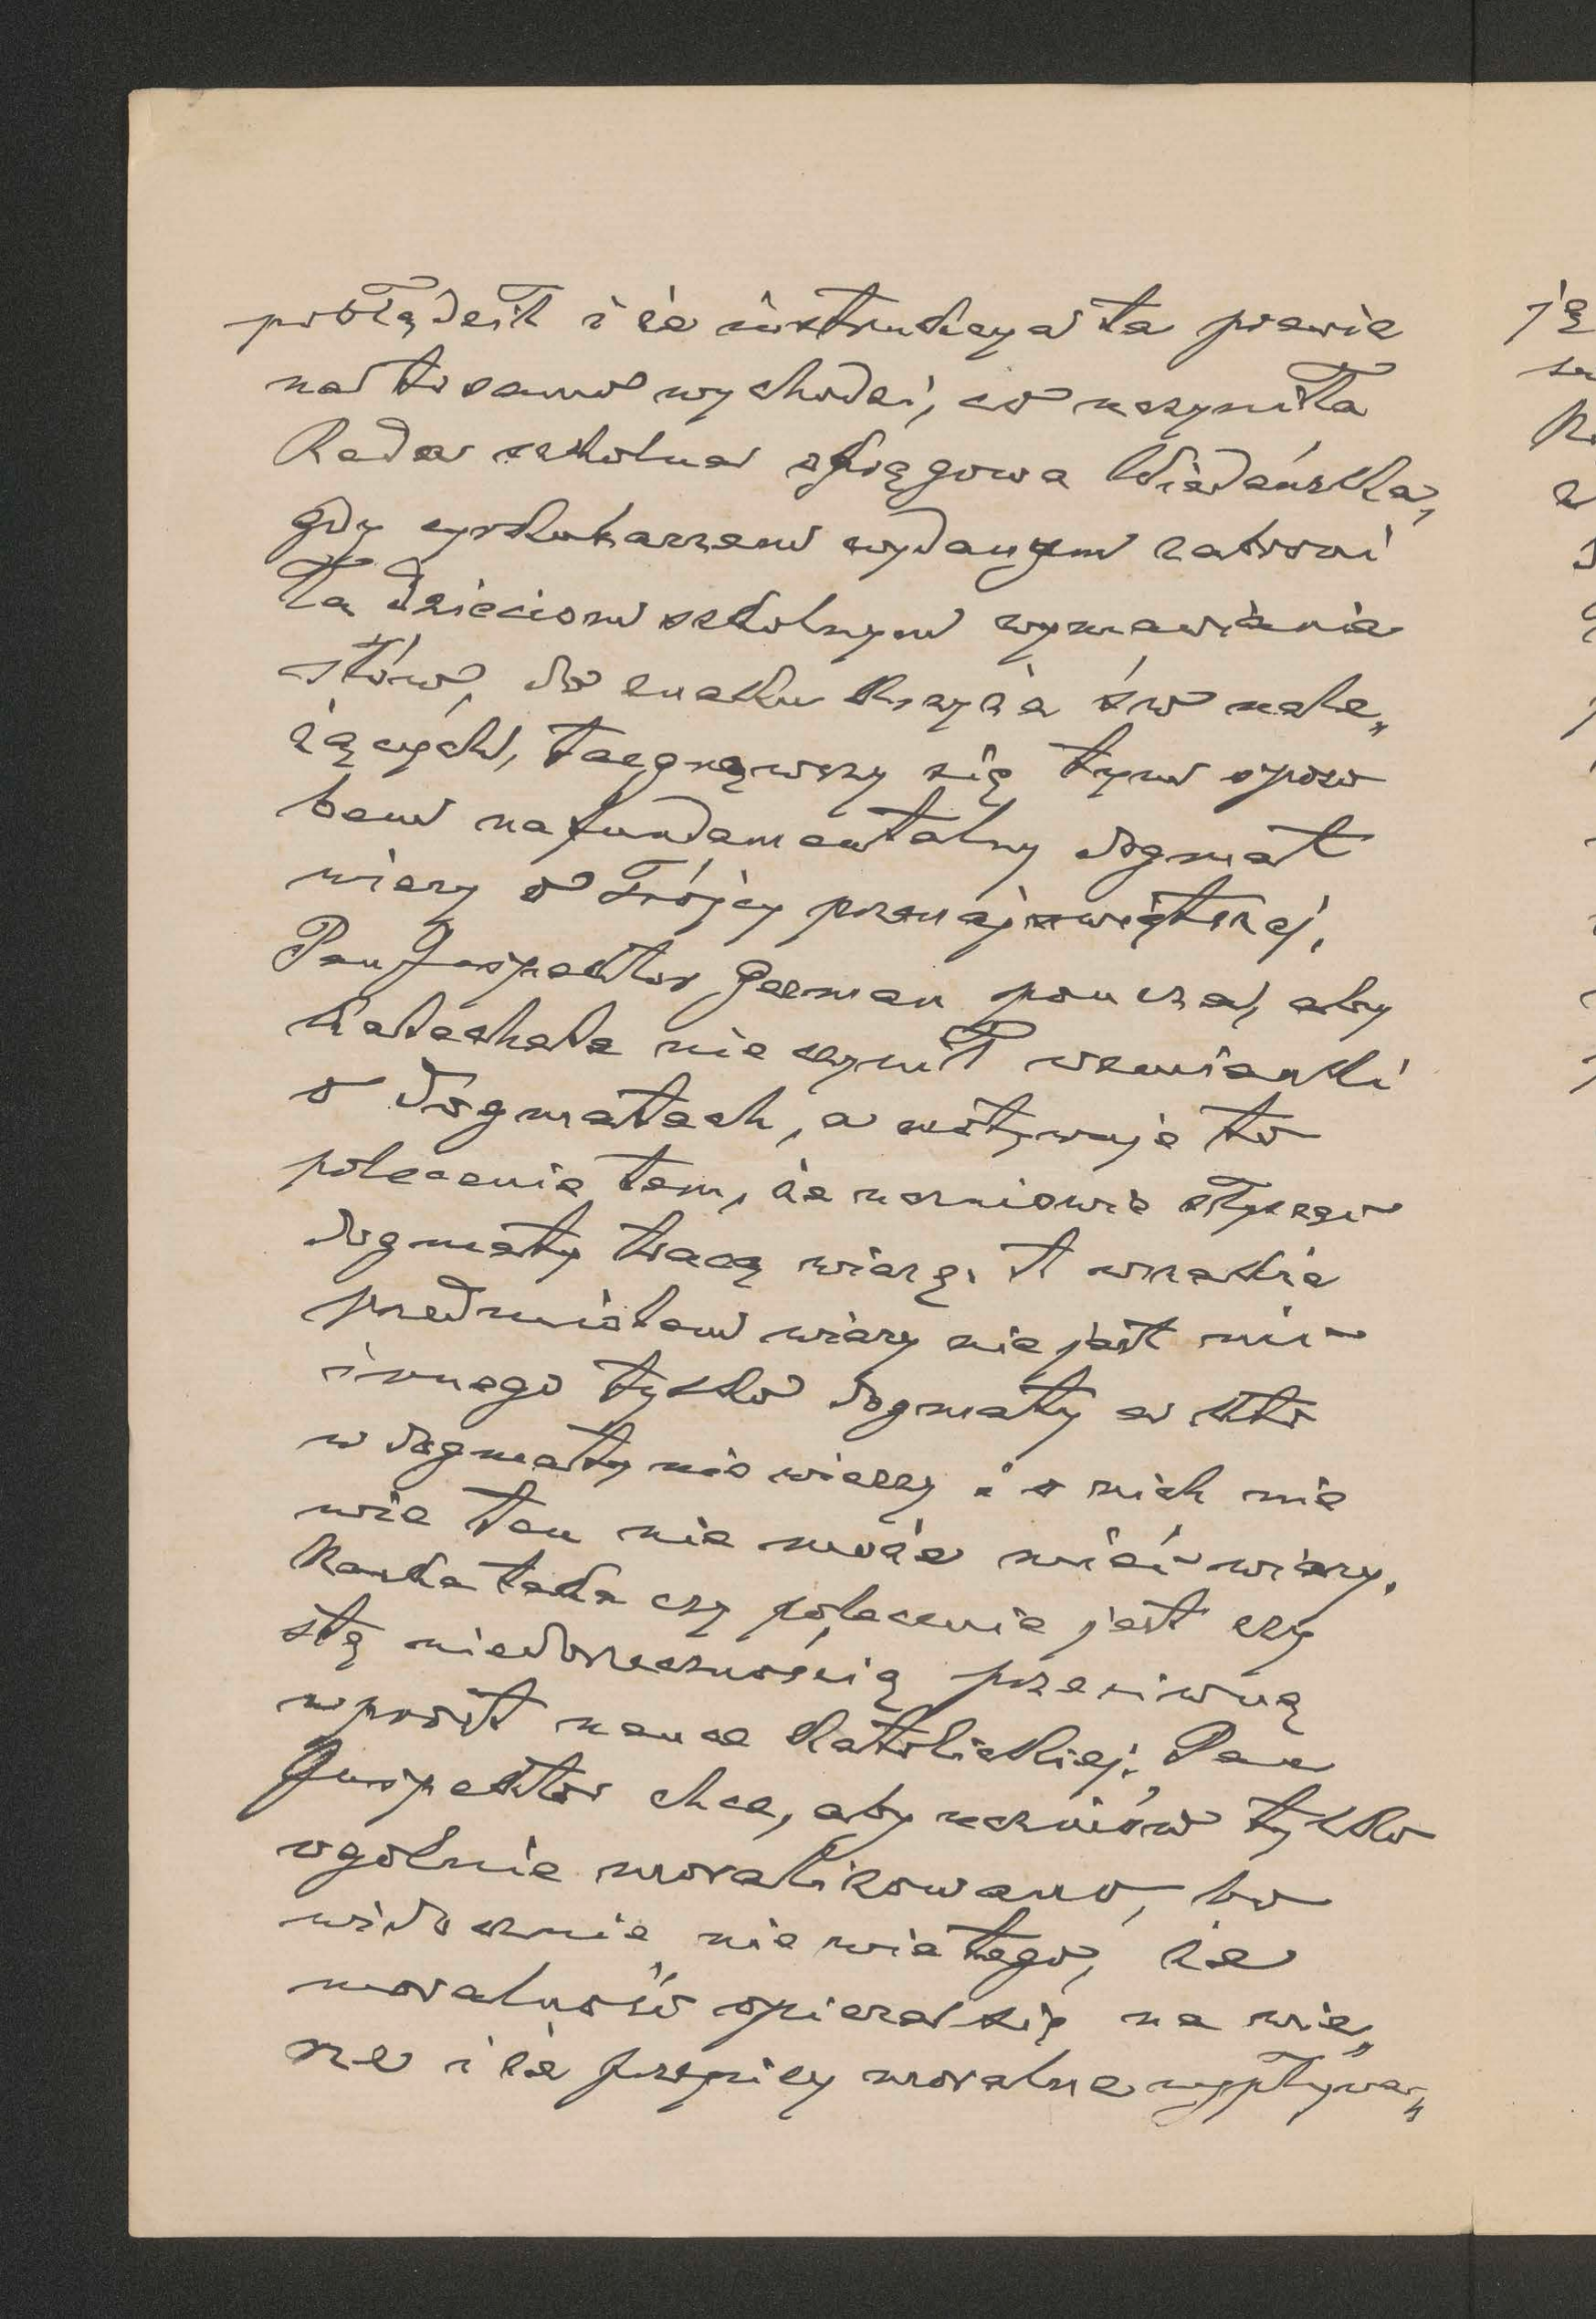 pobłądził i że instrukcya ta prawie
na to samo wychodzi, co uczyniła
Rada szkolna okręgowa Wiedeńska,
gdy cyrkularzem wydanym zabroni
ła dzieciom szkolnym wymawiania
słów, do znaku krzyża św nale„
żących, targnąwszy się tym sposo
bem na fundamentalny dogmat
wiary o Trójcy przenajświętszej.
Pan Inspektor German poucza, aby
Katecheta nie czynił wzmianki
o dogmatach, a motywuje to
polecenie tem, że uczniowie słysząc
dogmaty tracą wiarę. A wszakże
przedmiotem wiary nie jest nic
innego tylko dogmaty a kto
w dogmaty nie wierzy i o nich nie
wie ten nie może mieć wiary.
Nauka taka czy polecenie jest czy
stą niedorzecznością przeciwną
wprost nauce katolickiej. Pan
Inspektor chce, aby uczniów tylko
ogólnie moralizowano, bo
widocznie nie wie tego, że
moralność opiera się na wie„
rze i że przepisy moralne wypływa„
ją